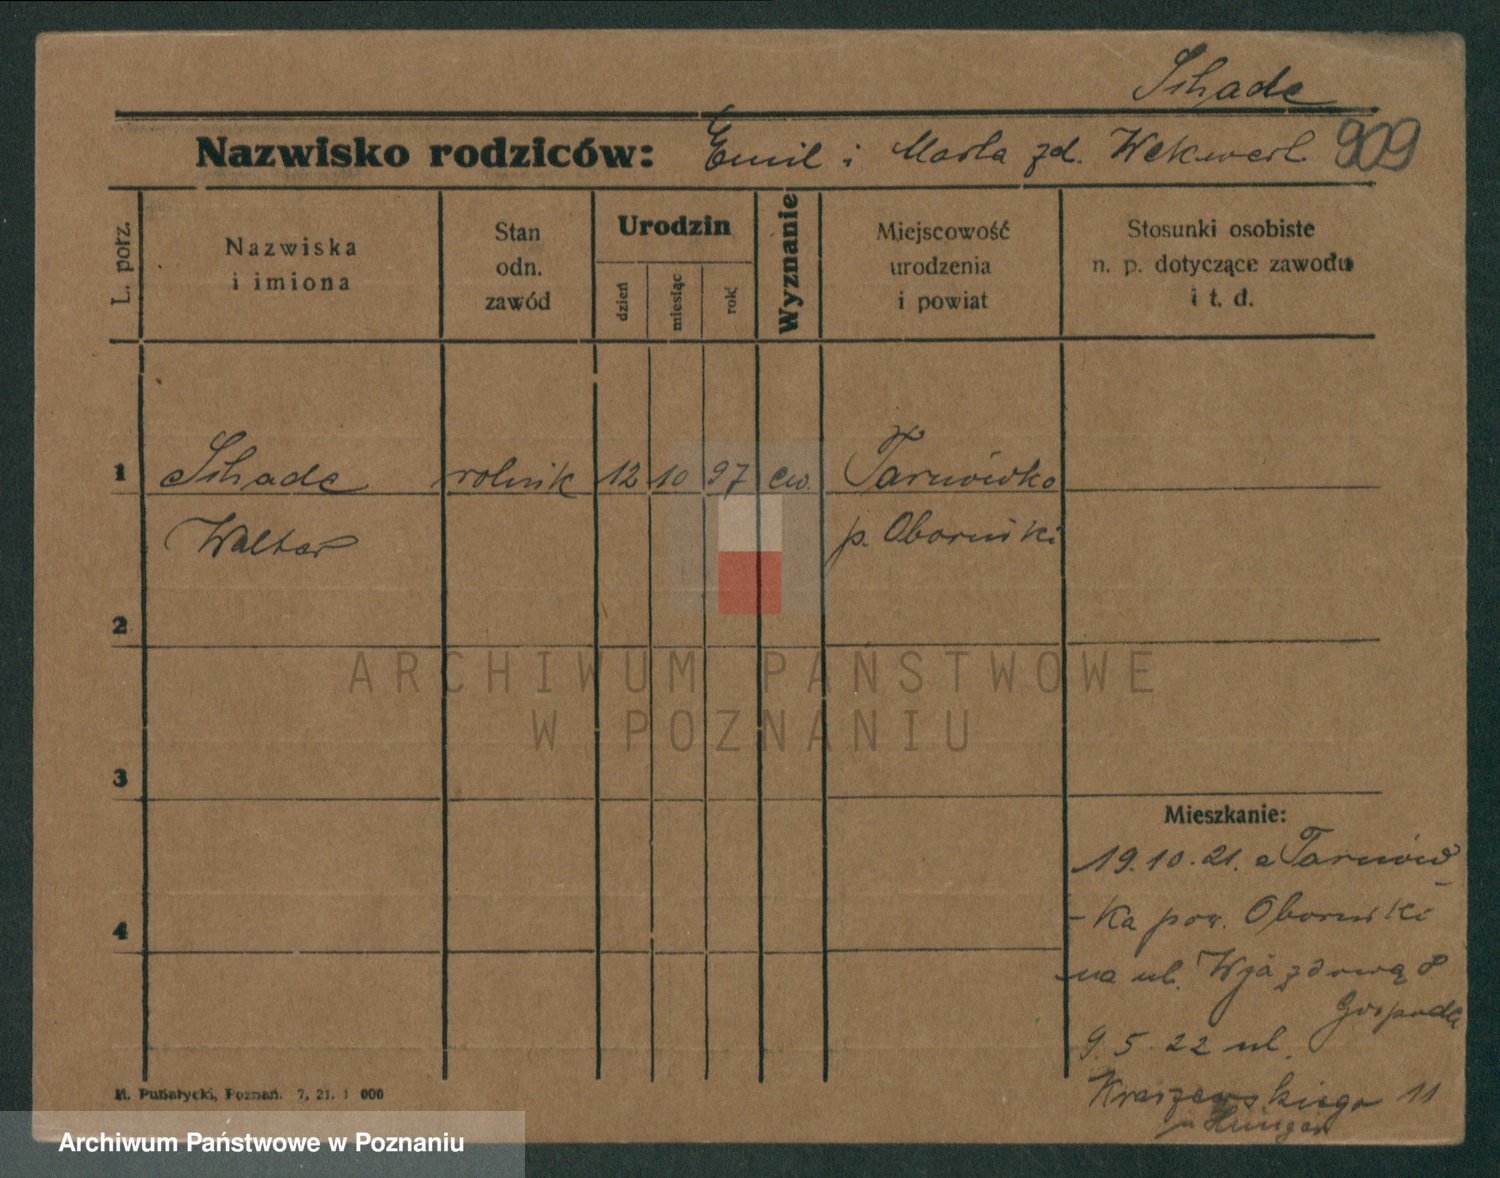 Schade
Nazwisko rodziców: Emil i Marta zd. Wekwert 909
L. porz.
Nazwiska
i imiona
Stan
odn.
zawód
Urodzin
dzień
miesiąc
rok
Wyznanie
Miejscowość
urodzenia
i powiat
Stosunki osobiste
n. p. dotyczące zawodu
i t. d.
1 Schade rolnik 12 10 97 ew. Tarnówko
Walter p. Oborniki
2
3
4
ARCHIWUM PAŃSTWOWE
W POZNANIU
Mieszkanie:
19.10.21. z Tarnów
-ka pow. Oborniki
na ul. Wjazdową 8
Gospoda
9.5.22 ul.
Kraszewskiego 11
Pusatycki, Poznań. 7, 21. 1 000
Archiwum Państwowe w Poznaniu